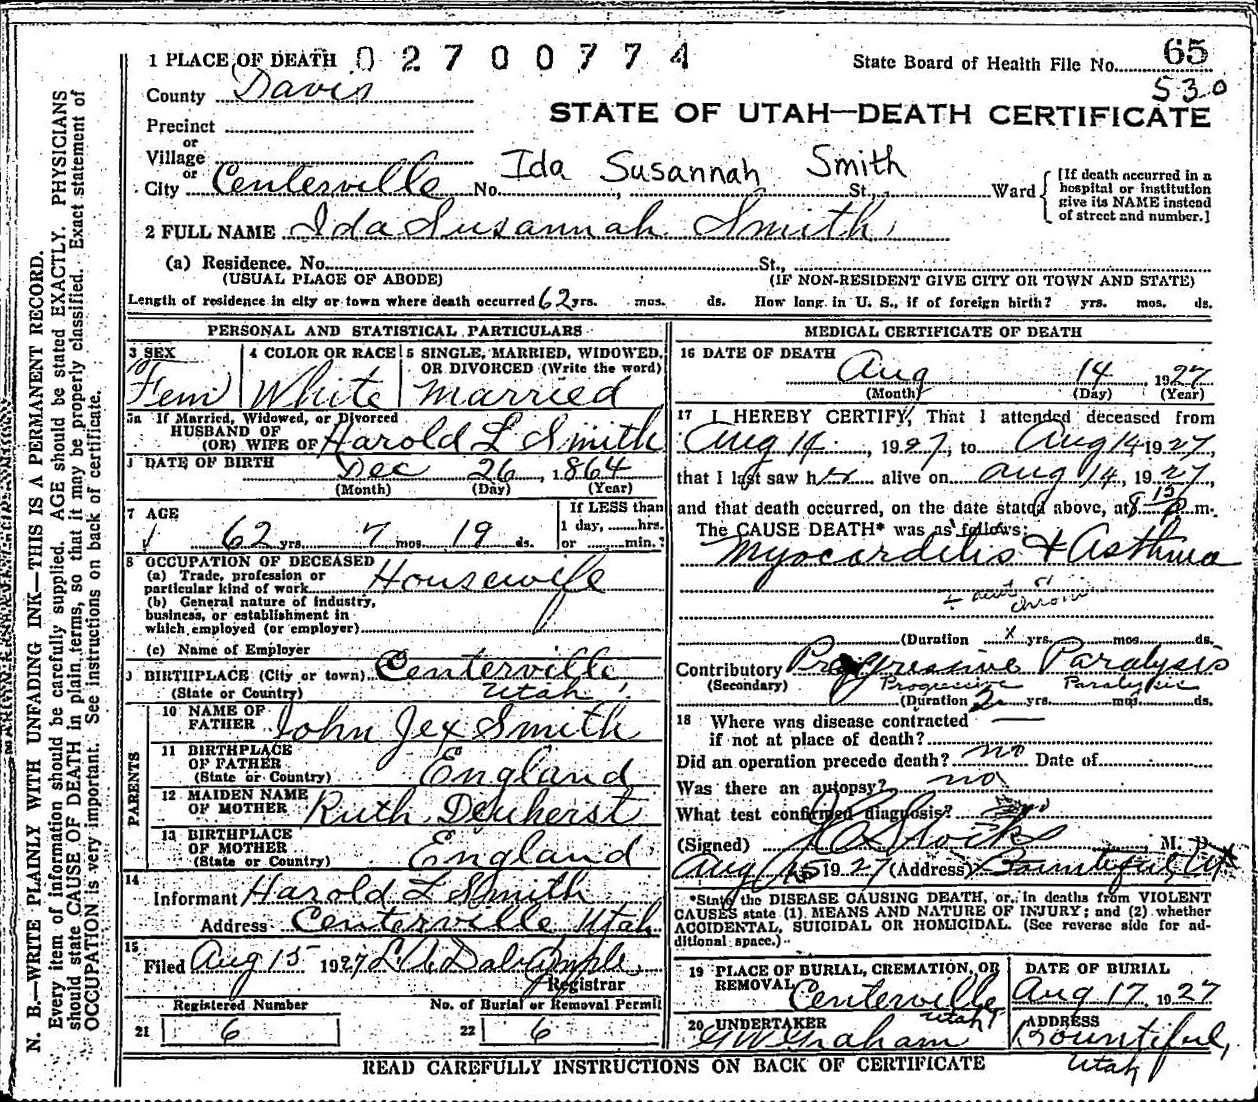 1 PLACE OF DEATH 02700774
State Board of Health File No. 65
530
County Davis
STATE OF UTAH—DEATH CERTIFICATE
Precinct
or
Village
or
Ida Susannah Smith
City Centerville No. St., Ward
[If death occurred in a hospital or institution give its NAME instead of street and number.]
2 FULL NAME Ida Susannah Smith
(a) Residence. No. St.,
(USUAL PLACE OF ABODE) (IF NON-RESIDENT GIVE CITY OR TOWN AND STATE)
Length of residence in city or town where death occurred 62 yrs. mos. ds. How long in U. S., if of foreign birth? yrs. mos. ds.
PERSONAL AND STATISTICAL PARTICULARS
3 SEX
Fem
4 COLOR OR RACE
White
5 SINGLE, MARRIED, WIDOWED, OR DIVORCED (Write the word)
married
5a If Married, Widowed, or Divorced
HUSBAND OF
(OR) WIFE OF Harold L Smith
DATE OF BIRTH
Dec 26, 1864
(Month) (Day) (Year)
7 AGE
62 yrs. 7 mos. 19 ds.
If LESS than
1 day, hrs.
or min.?
8 OCCUPATION OF DECEASED
(a) Trade, profession or
particular kind of work Housewife
(b) General nature of industry,
business, or establishment in
which employed (or employer)
(c) Name of Employer
BIRTHPLACE (City or town) Centerville
(State or Country) Utah
PARENTS
10 NAME OF
FATHER John Jex Smith
11 BIRTHPLACE
OF FATHER
(State or Country) England
12 MAIDEN NAME
OF MOTHER Ruth Dewherst
13 BIRTHPLACE
OF MOTHER
(State or Country) England
14
Informant Harold L Smith
Address Centerville Utah
15
Filed Aug 15 1927 L. A. Dalrymple
Registrar
Registered Number No. of Burial or Removal Permit
21 6 22 6
MEDICAL CERTIFICATE OF DEATH
16 DATE OF DEATH
Aug 14, 1927
(Month) (Day) (Year)
17 I HEREBY CERTIFY, That I attended deceased from
Aug 14, 1927, to Aug 14, 1927,
that I last saw her alive on Aug 14, 1927,
and that death occurred, on the date stated above, at 8 15 P m.
The CAUSE DEATH* was as follows:
Myocarditis & Asthma
(Duration x yrs. mos. ds.
Contributory Progressive Paralysis
(Secondary) Progressive Paralysis
(Duration 2 yrs. mos. ds.
18 Where was disease contracted
if not at place of death?
Did an operation precede death? no Date of
Was there an autopsy? no
What test confirmed diagnosis?
(Signed) M. D.
Aug 15 1927 (Address) Bountiful, Ut
*State the DISEASE CAUSING DEATH, or, in deaths from VIOLENT
CAUSES state (1) MEANS AND NATURE OF INJURY; and (2) whether
ACCIDENTAL, SUICIDAL OR HOMICIDAL. (See reverse side for ad-
ditional space.)
19 PLACE OF BURIAL, CREMATION, OR
REMOVAL Centerville
Utah
DATE OF BURIAL
Aug 17, 1927
20 UNDERTAKER
G W Graham
ADDRESS
Bountiful,
Utah
READ CAREFULLY INSTRUCTIONS ON BACK OF CERTIFICATE
N. B.—WRITE PLAINLY WITH UNFADING INK—THIS IS A PERMANENT RECORD.
Every item of information should be carefully supplied. AGE should be stated EXACTLY. PHYSICIANS
should state CAUSE OF DEATH in plain terms, so that it may be properly classified. Exact statement of
OCCUPATION is very important. See instructions on back of certificate.